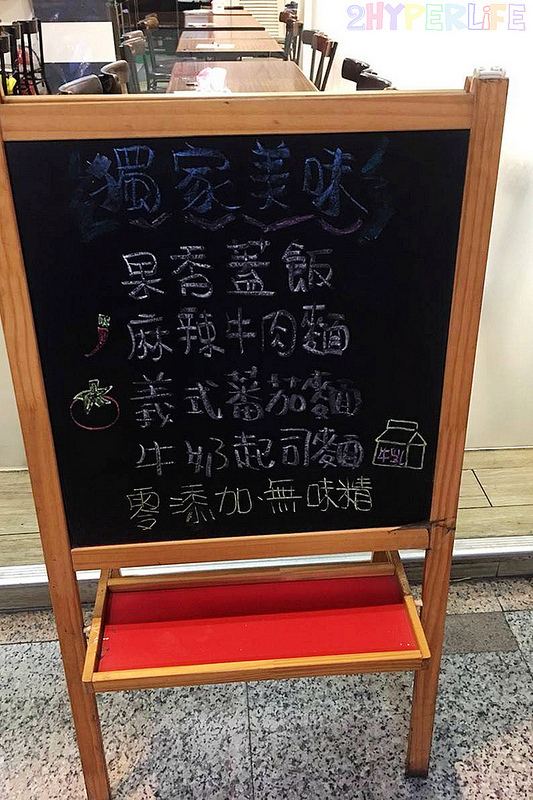 2HYPERLiFE
獨家美味
果香蓋飯
麻辣牛肉麵
義式蕃茄麵
牛奶起司麵
零添加、無味精